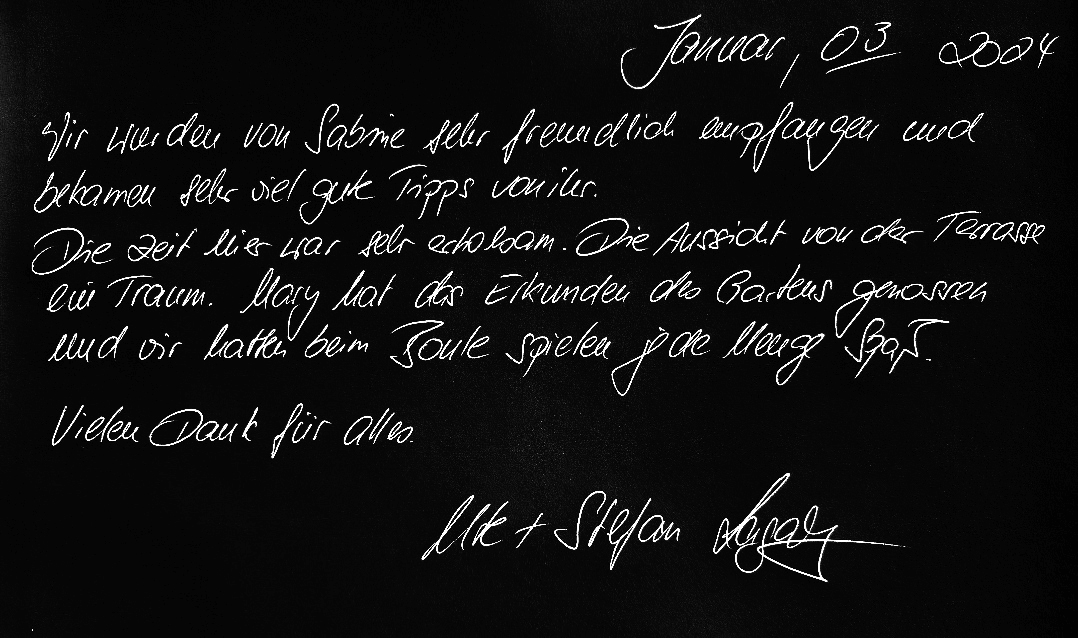 Januar, 03 2024
Wir wurden von Sabine sehr freundlich empfangen und
bekamen sehr viel gute Tipps von ihr.
Die Zeit hier war sehr erholsam. Die Aussicht von der Terrasse
ein Traum. Mary hat das Erkunden des Gartens genossen
und wir hatten beim Boule spielen jede Menge Spaß.
Vielen Dank für alles.
+ Stefan